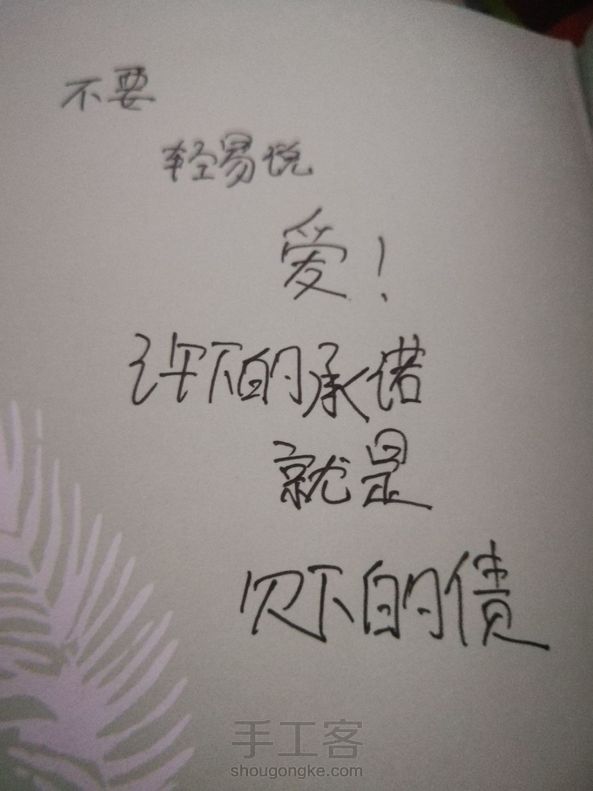 不要
轻易说
爱！
许下的承诺
就是
欠下的债
手工客
shougongke.com